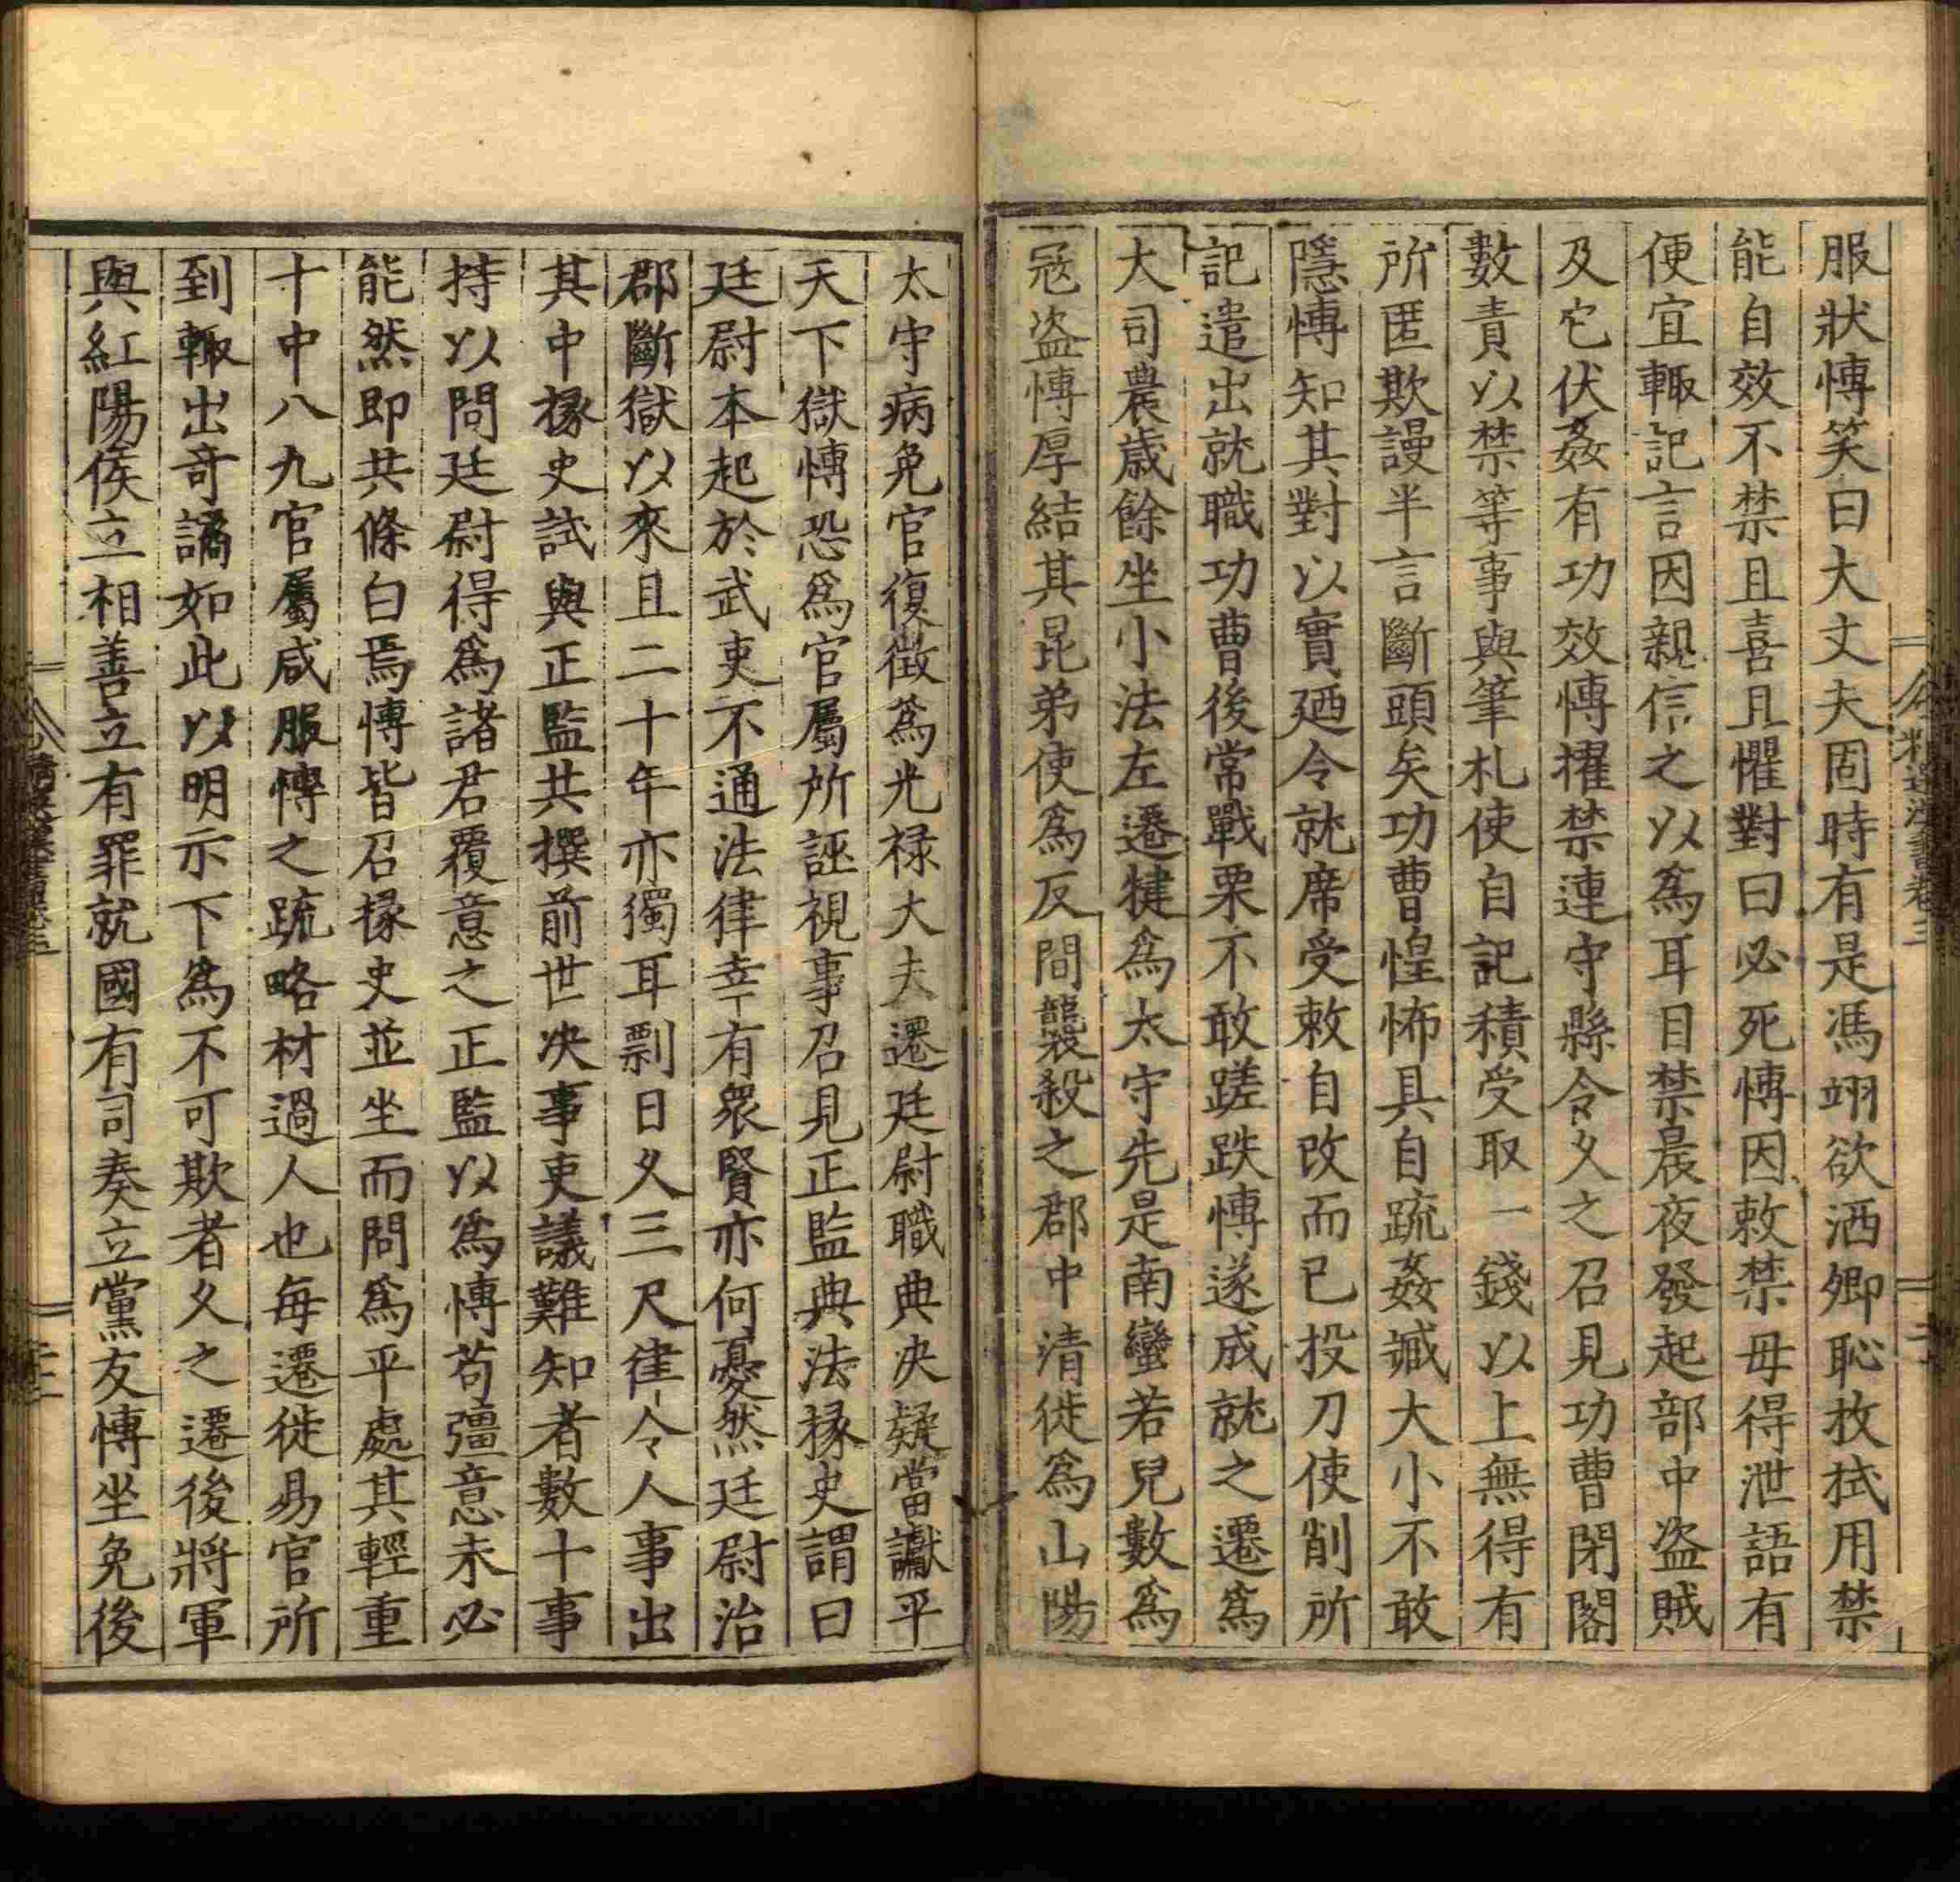 服狀愽笑曰大丈夫固時有是馮翊欲洒卿恥抆拭用禁
能自效不禁且喜且懼對曰必死愽因敕禁毋得泄語有
便宜輙記言因親信之以爲耳目禁晨夜發起部中盗賊
及它伏姦有功效愽擢禁連守縣令久之召見功曹閉閤
數責以禁等事與筆札使自記積受取一錢以上無得有
所匿欺謾半言斷頭矣功曹惶怖具自疏姦臧大小不敢
隱愽知其對以實廼令就席受敕自改而已投刀使削所
記遣出就職功曹後常戰栗不敢蹉跌愽遂成就之遷爲
大司農歲餘坐小法左遷犍爲太守先是南蠻若兒數爲
寇盗愽厚結其昆弟使爲反間襲殺之郡中清徙爲山陽
太守病免官復徴爲光禄大夫遷廷尉職典决疑當讞平
天下獄愽恐爲官屬所誣視事召見正監典法掾史謂曰
廷尉本起於武吏不通法律幸有衆賢亦何憂然廷尉治
郡斷獄以來且二十年亦獨耳剽日久三尺律令人事出
其中掾史試與正監共撰前世决事吏議難知者數十事
持以問廷尉得爲諸君覆意之正監以爲愽苟彊意未必
能然即共條白焉愽皆召掾史並坐而問爲平處其輕重
十中八九官屬咸服愽之疏略材過人也每遷徙易官所
到輙出奇譎如此以明示下爲不可欺者久之遷後將軍
與紅陽侯立相善立有罪就國有司奏立黨友愽坐免後